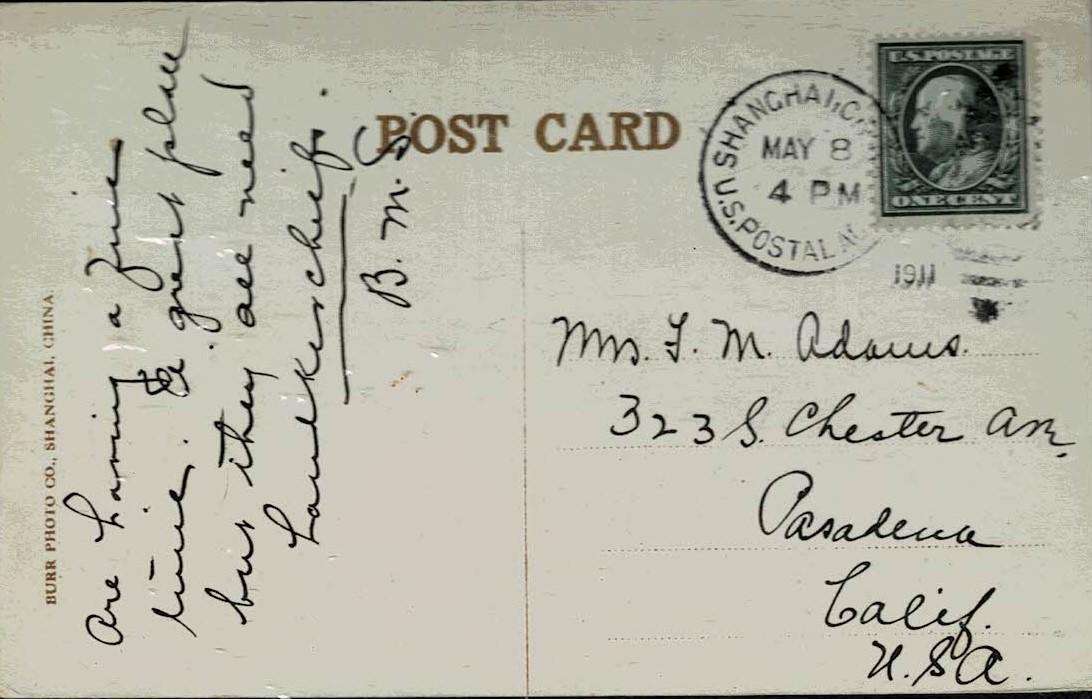 POST CARD
Are having a fine
time. A great place
but they all need
handkerchiefs.
B. M. S
BURR PHOTO CO., SHANGHAI, CHINA.
U.S. POSTAGE
ONE CENT
SHANGHAI, C
MAY 8
4 PM
U.S. POSTAL A
1911
Mrs. F. M. Adams.
323 S. Chester Ave.
Pasadena
Calif.
U.S.A.